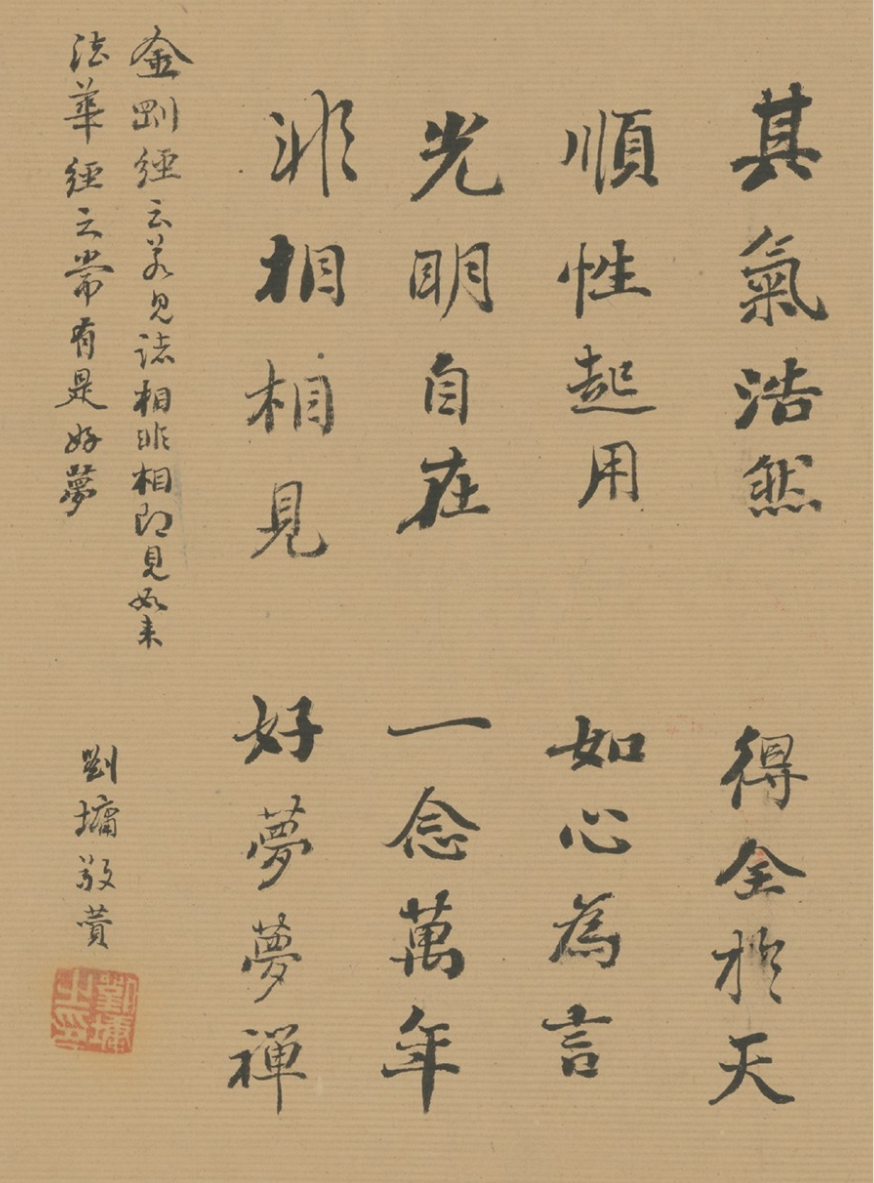 其氣浩然 得全於天
順性起用 如心為言
光明自在 一念萬年
非相相見 好夢夢禪
金剛經云若見諸相非相即見如来
法華經云常有是好夢
劉墉敬贊
劉墉之印